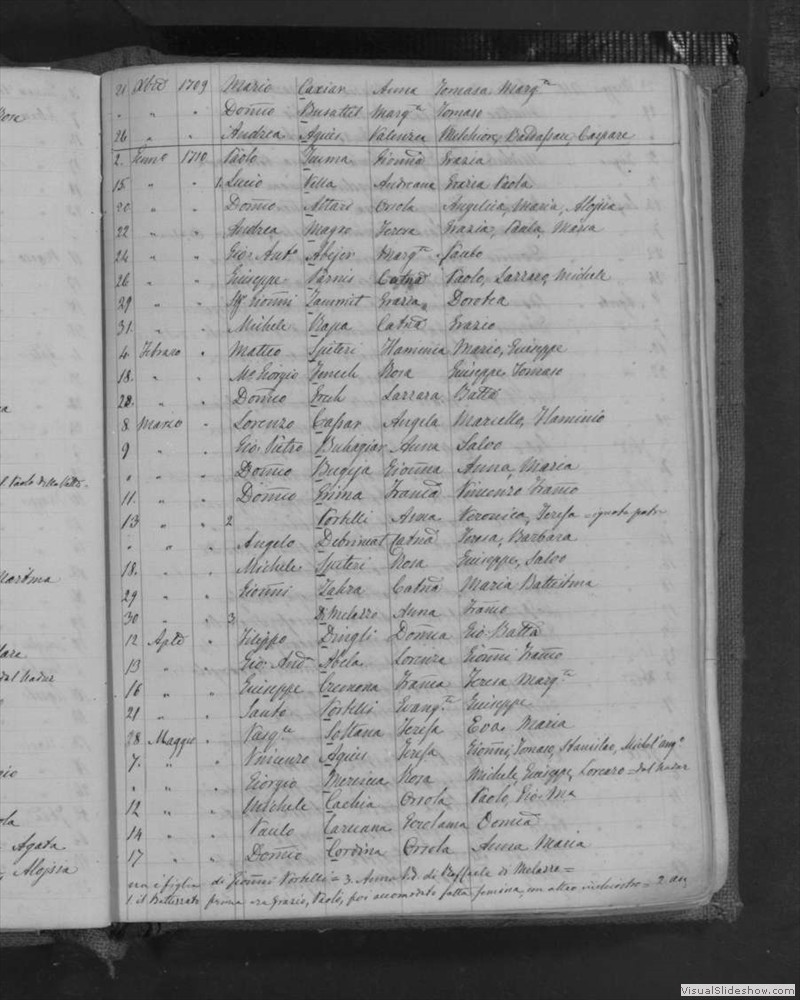 21 Xbre 1709 Mario Caxiar Anna Tomasa Marg.ta
" " " Dom̃co Busuttel Marg.ta Tomaso
26 " " Andrea Aquis Valenza Melchiore, Baldassar, Caspare
2. Genn.o 1710 Paolo Gium̃a Giom̃a Grazia
15 " " 1. Lucio Vella Andreana Grazia Paola
20 " " Dom̃co Attard Orsola Angelica, Maria, Aloisia
22 " " Andrea Magro Teresa Grazia, Paola, Maria
24 " " Gio: Ant.o Abejer Marg.ta Paulo
26 " " Giuseppe Parnis Catñā Paolo, Lazzaro, Michele
29 " " Giom̃i Zammit Grazia Dorotea
31. " " Michele Rapa Catñā Grazio
4. Febraro " Matteo Spiteri Flaminia Mario, Giuseppe
18. " " M.o Giorgio Fenech Rosa Giuseppe Tomaso
28. " " Dom̃co Grech Lazzara Batt.a
8 Marzo " Lorenzo Cassar Angela Marcello, Flaminio
9 " " Gio: Pietro Buhagiar Anna Salvo
" " " Dom̃co Bugeja Giom̃a Anna Maria
11. " " Dom̃co Grima Franc̃a Vincenzo Franco
13 " " 2 Portelli Anna Veronica, Teresa = ignoto patre
" " " Angelo Debrincat Catñā Teresa, Barbara
18. " " Michele Spiteri Rosa Giuseppe, Salvo
29 " " Giom̃i Zahra Catñā Maria Battistina
30 " " 3. Di Melazzo Anna Franco
12 Aple " Filippo Dingli Dom̃ca Gio: Batta
13 " " Gio: And.a Abela Lorenza Giom̃i Franco
16 " " Giuseppe Cremona Franca Teresa Marg.ta
21 " " Santo Portelli Evang.ta Giuseppe
28 Maggio " Pasq.le Soltana Teresa Eva Maria
7. " " Vincenzo Aquis Teresa Giom̃i, Tomaso, Stanislao, Michel'ang.o
" " " Giorgio Mercieca Rosa Michele, Giuseppe, Lorenzo = dal Nadur
12 " " Michele Cachia Orsola Paolo, Gio: Ma
14 " " Paulo Caruana Gerolama Dom̃ca
17 " " Dom̃co Cordina Orsola Anna Maria
di Giom̃i Portelli = 3. Anna V.d. di Raffaele di Melazzo =
1 il Battezzato prima era Grazio, Paolo, poi accomodato fatta femina, un altro inchiostro = 2.
Paolo della
Nadur
Agata
Aloisia
VisualSlideshow.com